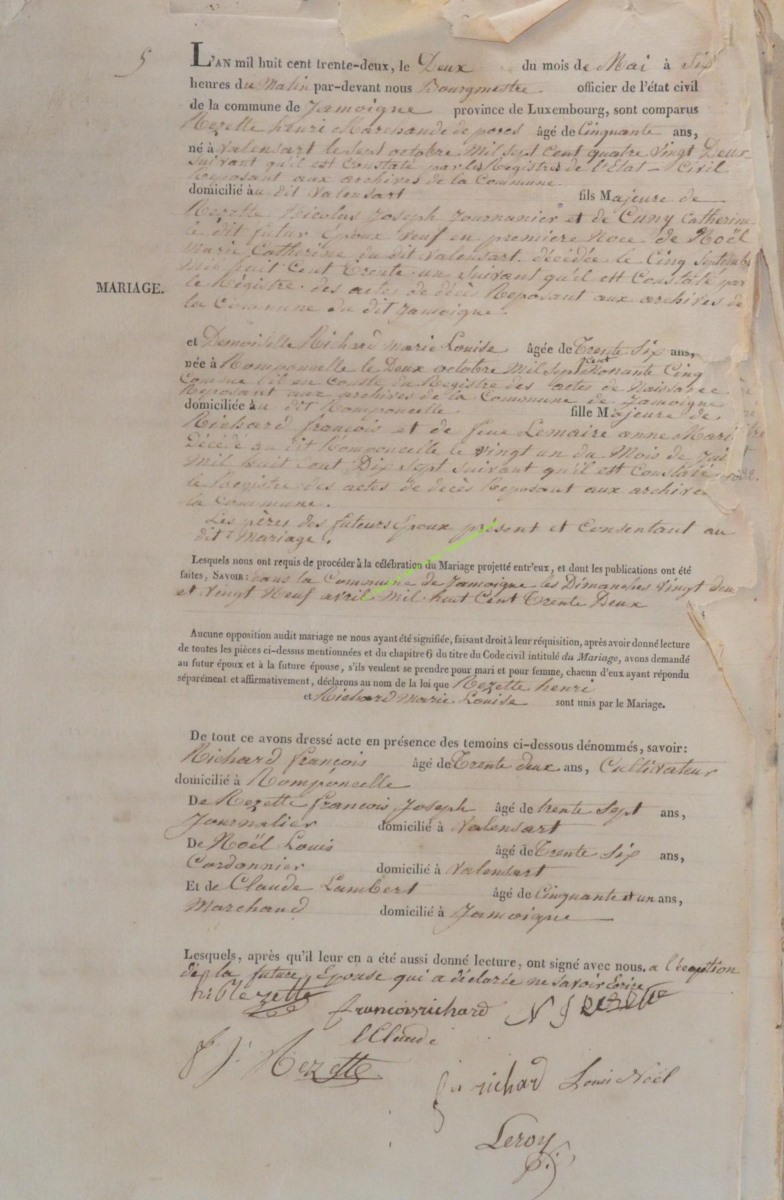 5
L'AN mil huit cent trente-deux, le Deux du mois de Mai à Six
heures du Matin par-devant nous Bourgmestre officier de l'état civil
de la commune de Jamoigne province de Luxembourg, sont comparus
Rezette henri Marchande de porcs âgé de Cinquante ans,
né à Valensart le Sept octobre Mil Sept Cent quatre Vingt Deux
Suivant qu'il est Constaté par les Registres de l'Etat-Civil
Reposant aux archives de la Commune.
domicilié au dit Valensart fils Majeure de
Rezette Nicolas Joseph Journanier et de Cuny Catherine
le dit futur Époux Veuf en premiere Noce de Noël
Marie Catherine du dit Valensart. décédée le Cinq Septembre
Mil huit Cent Trente un Suivant qu'il est Constaté par
le Registre des actes de décès Reposant aux archives de
la Commune du dit Jamoigne.
MARIAGE.
et Demoiselle Richard Marie Louise âgée de Trente Six ans,
née à Romponcelle le Deux octobre Mil Sept Cent Nonante Cinq
Comme il en Conste du Registre des actes de Naissance
Reposant aux archives de la Commune de Jamoigne
domiciliée au dit Romponcelle fille Majeure de
Richard françois et de feue Lemaire anne Mari
Décédé au dit Romponcelle le Vingt un du Mois de
Mil huit Cent Dix Sept Suivant qu'il est Constaté
le Registre des actes de décès Reposant aux archives
la Commune.
Les pères des futurs Époux présent et Consentant au
dit Mariage.
Lesquels nous ont requis de procéder à la célébration du Mariage projetté entr'eux, et dont les publications ont été
faites, SAVOIR: dans la Commune de Jamoigne les Dimanches Vingt deux
et Vingt Neuf avril Mil huit Cent Trente Deux
Aucune opposition audit mariage ne nous ayant été signifiée, faisant droit à leur réquisition, après avoir donné lecture
de toutes les pièces ci-dessus mentionnées et du chapitre 6 du titre du Code civil intitulé du Mariage, avons demandé
au futur époux et à la future épouse, s'ils veulent se prendre pour mari et pour femme, chacun d'eux ayant répondu
séparément et affirmativement, déclarons au nom de la loi que Rezette henri
et Richard Marie Louise sont unis par le Mariage.
De tout ce avons dressé acte en présence des temoins ci-dessous dénommés, savoir:
Richard françois âgé de Trente deux ans, Cultivateur
domicilié à Romponcelle
De Rezette françois Joseph âgé de trente Sept ans,
Journalier domicilié à Valensart
De Noël Louis âgé de Trente Six ans,
Cordonnier domicilié à Valensart
Et de Claude Lambert âgé de Cinquante et un ans,
Marchand domicilié à Jamoigne
Lesquels, après qu'il leur en a été aussi donné lecture, ont signé avec nous. a l'éception
de la future Épouse qui a déclarée ne Savoir Écrire
françois richard N J Rezette
l Claude
f J. Rezette
richard Louis Noël
Leroy